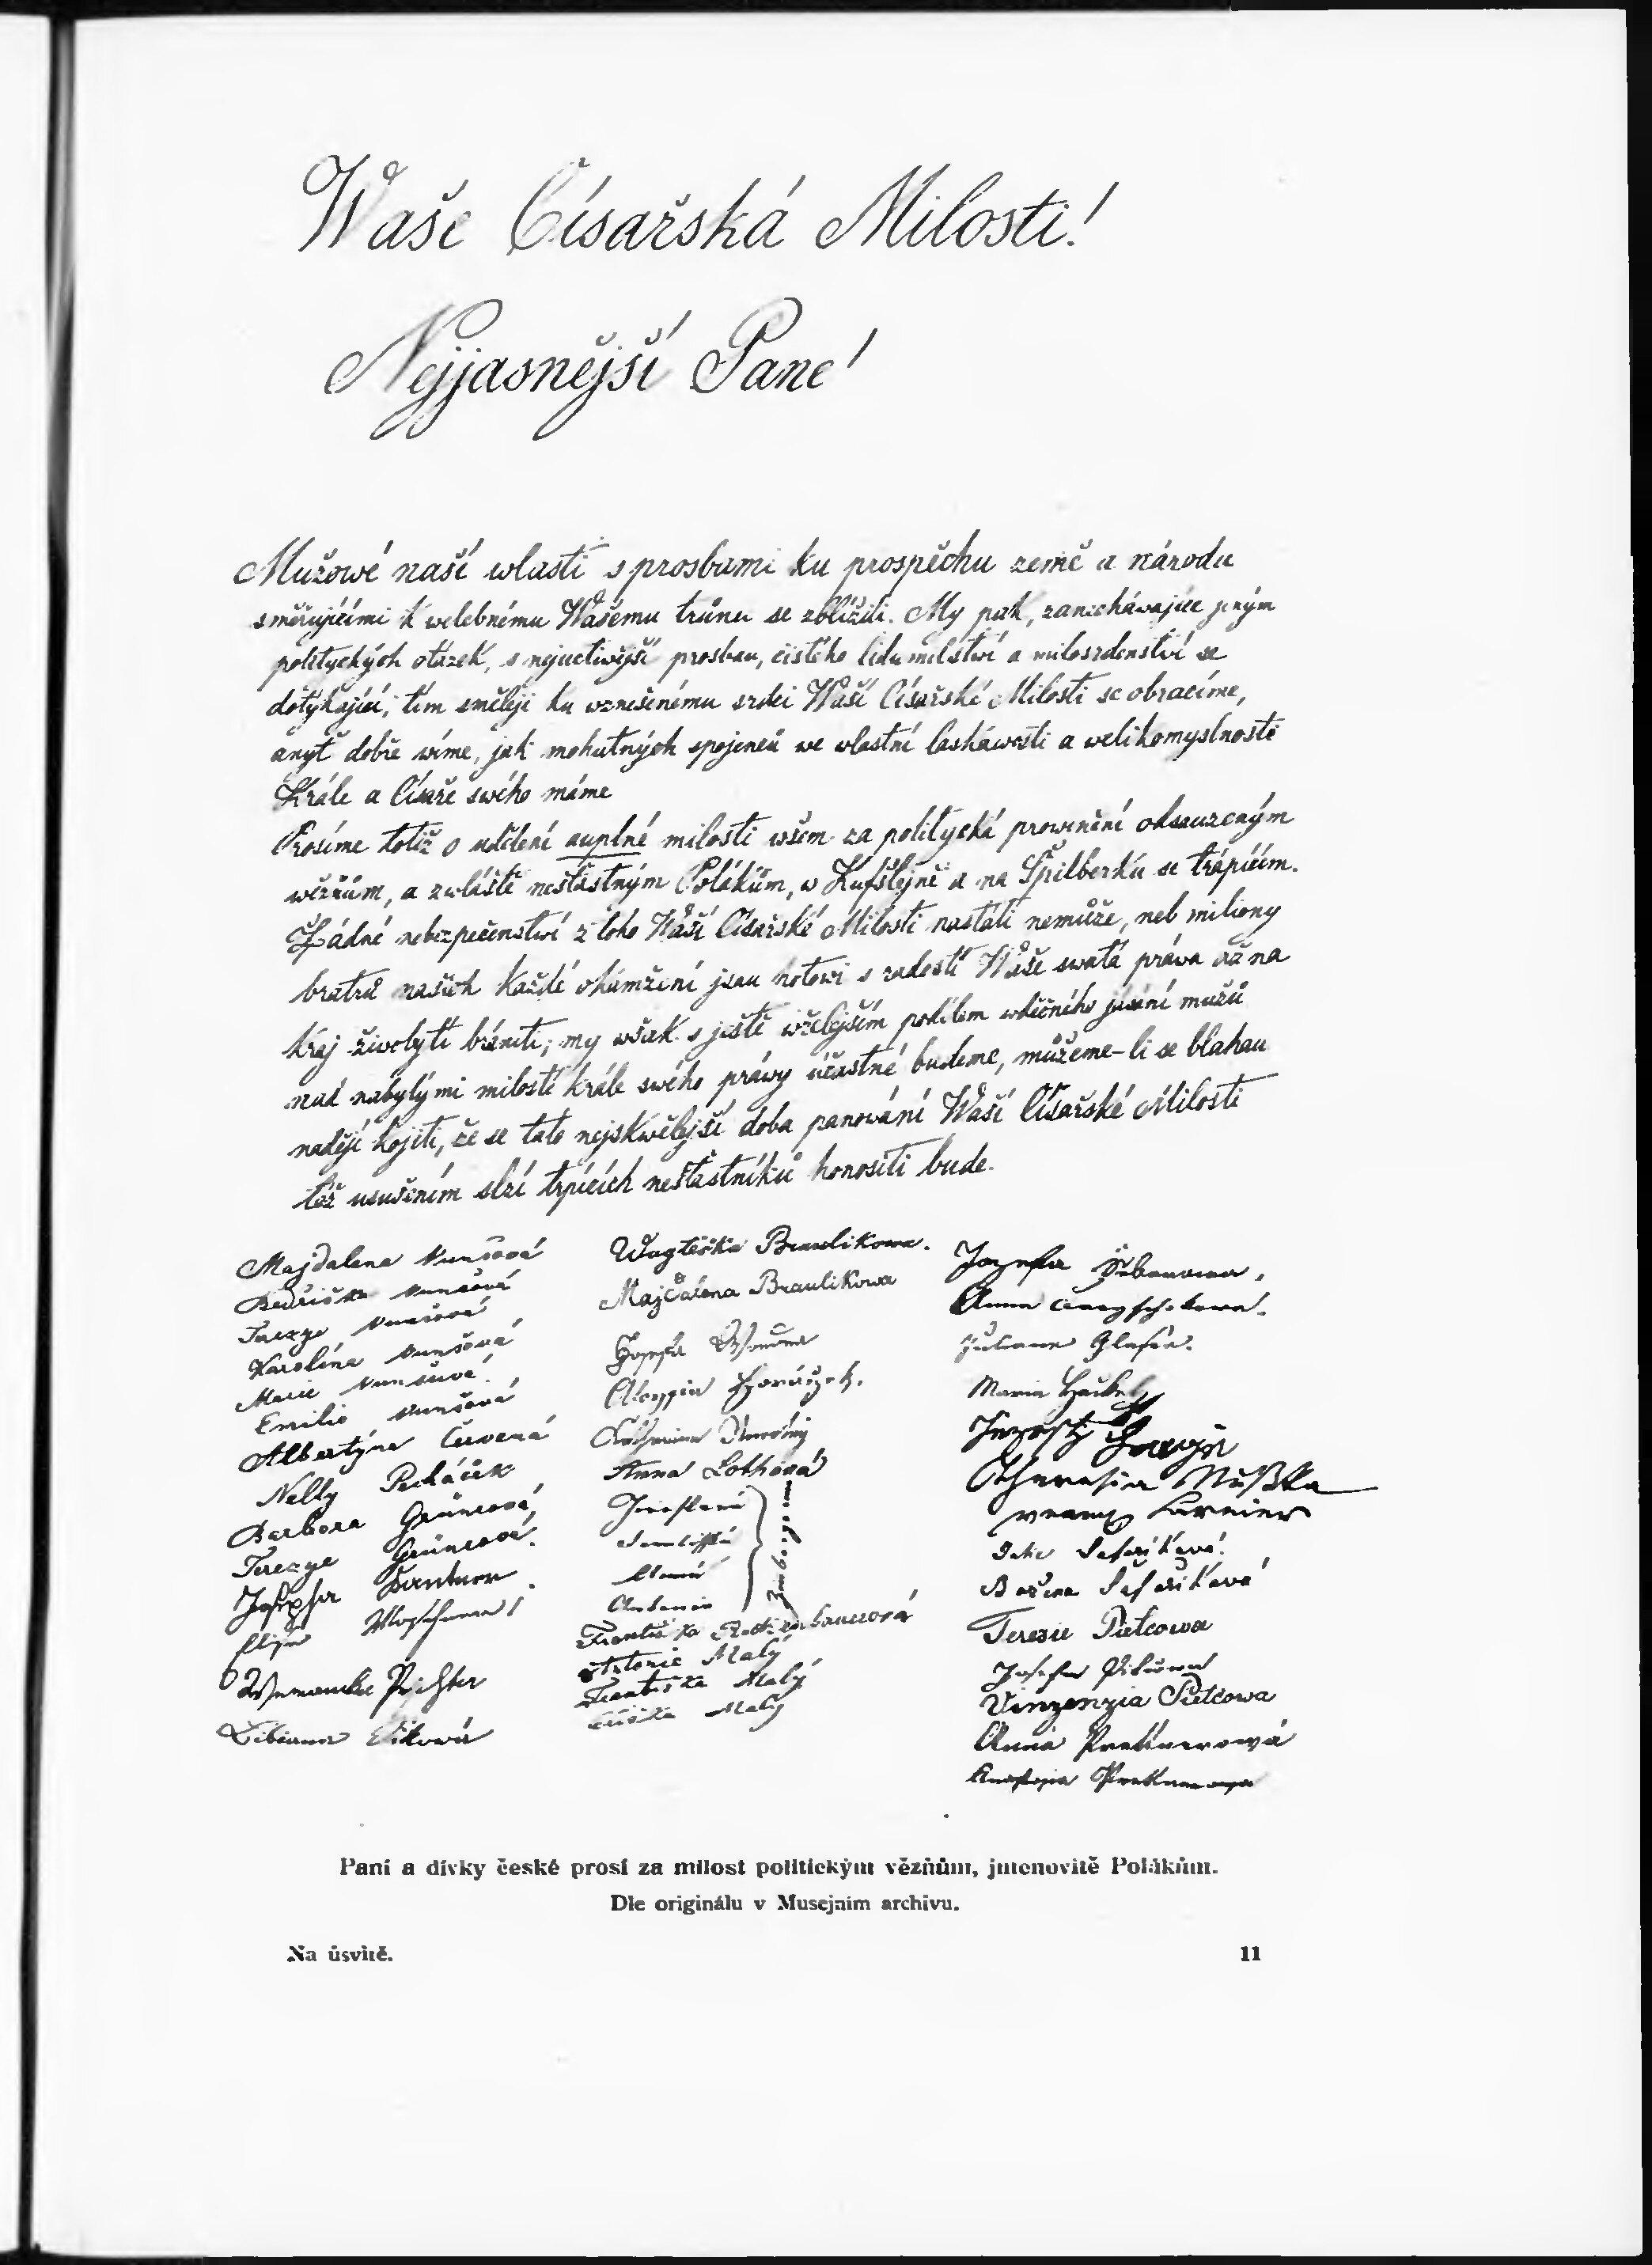 Waše Císařská Milosti!
Nejjasnější Pane!
Mužowé naší wlasti s prosbami ku prospěchu země a národu
směřujícími k welebnému Wašemu trůnu se zblížili. My pak, zanecháwajíce jiným
polityckých otázek, s nejuctiwější prosbau, čistého lidumilstwí a milosrdenstwí se
dotýkající, tím směleji ku wznešenému srdci Waší Císařské Milosti se obracíme,
anyť dobře wíme, jak mohutných spojenců we wlastní láskawosti a welikomyslnosti
Krále a Císaře swého máme
Prosíme totiž o udělení auplné milosti wšem za politycká prowinění odsauzeným
wězňům, a zwláště nešťastným Polákům, w Kufštejně a na Špilberku se trápícím.
Žádné nebezpečenstwí z toho Waší Císařské Milosti nastati nemůže, neb miliony
bratrů našich každé okamžení jsau hotowi s radostí Waše swatá práwa až na
kraj žiwobytí brániti; my wšak s ještě wřelejším podílem wděčného jásání mužů
nad nabytými milostí krále swého práwy účastné budeme, můžeme-li se blahau
nadějí kojiti, že se tato nejskwělejší doba panowání Waší Císařské Milosti
též usušením slzí trpících nešťastníků honositi bude.
Majdalena
Bedřiška
Terezye
Karolína
Marie
Emilie
Albertýna Červená
Nelly Pecháček
Barbora Grünerová
Terezye Grünerová
Josepha
Richter
Bibiana
Wogtěška Braulikowa.
Majdaléna Braulikowa
Josefa
Aloysia
Katharina
Anna Lothová
Antonie
Františka
Antonie Malý
Františka Malý
Malý
Josefa
Anna
Juliana
Maria
Athanasia
Šafaříková
Božena Šafaříková
Terezie Pietcowa
Josefa
Vinzenzia Pietcowa
Anna
Paní a dívky české prosí za milost politickým vězňům, jmenovitě Polákům.
Dle originálu v Musejním archivu.
Na úsvitě.
11